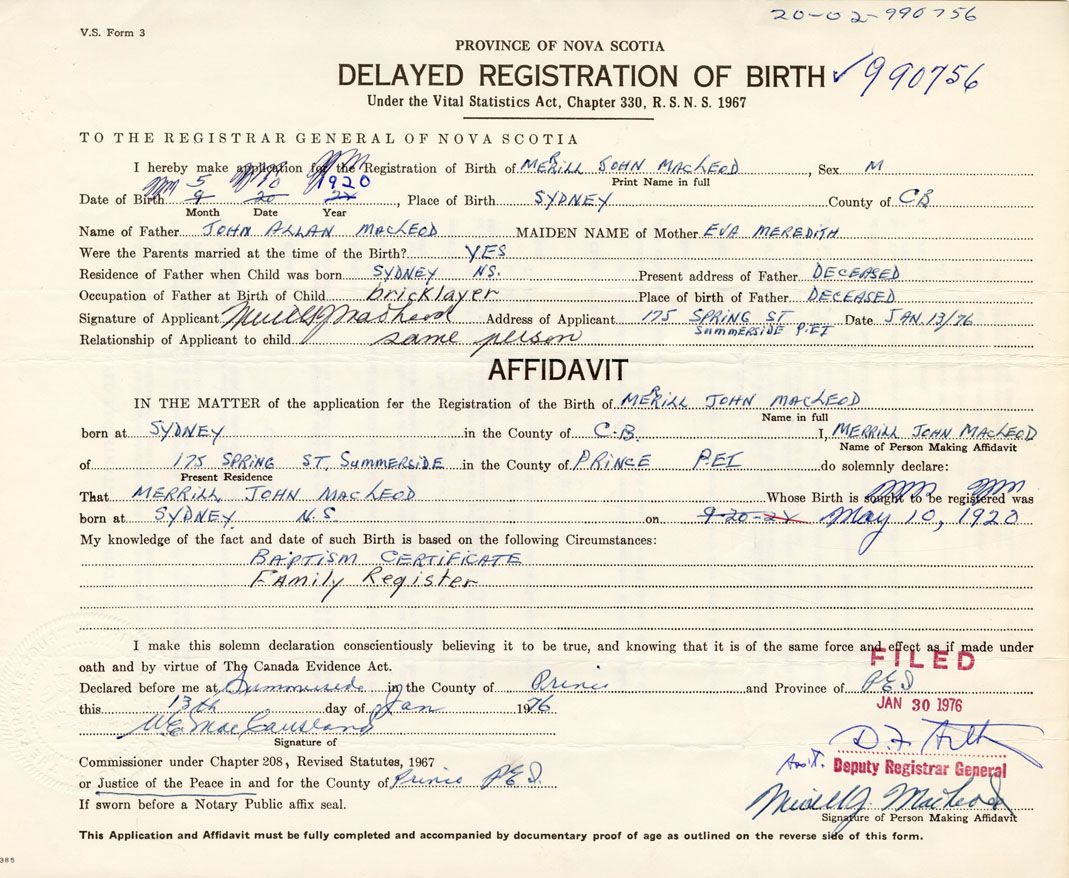 20-02-990756
V.S. Form 3
PROVINCE OF NOVA SCOTIA
DELAYED REGISTRATION OF BIRTH ✓990756
Under the Vital Statistics Act, Chapter 330, R.S.N.S. 1967
TO THE REGISTRAR GENERAL OF NOVA SCOTIA
I hereby make application for the Registration of Birth of MERRILL JOHN MACLEOD, Sex M
Print Name in full
5 10 1920
Date of Birth 9 20 24, Place of Birth SYDNEY County of CB
Month Date Year
Name of Father JOHN ALLAN MACLEOD MAIDEN NAME of Mother EVA MEREDITH
Were the Parents married at the time of the Birth? YES
Residence of Father when Child was born SYDNEY NS. Present address of Father DECEASED
Occupation of Father at Birth of Child bricklayer Place of birth of Father DECEASED
Signature of Applicant Merrill J MacLeod Address of Applicant 175 SPRING ST Date JAN. 13/76
SUMMERSIDE P.E.I
Relationship of Applicant to child same person
AFFIDAVIT
IN THE MATTER of the application for the Registration of the Birth of MERRILL JOHN MACLEOD
Name in full
born at SYDNEY in the County of C.B. I, MERRILL JOHN MACLEOD
Name of Person Making Affidavit
of 175 SPRING ST, SUMMERSIDE in the County of PRINCE P.E.I do solemnly declare:
Present Residence
That MERRILL JOHN MACLEOD Whose Birth is sought to be registered was
born at SYDNEY N.S. on 9-20-24 May 10, 1920
My knowledge of the fact and date of such Birth is based on the following Circumstances:
BAPTISM CERTIFICATE
Family Register
I make this solemn declaration conscientiously believing it to be true, and knowing that it is of the same force and effect as if made under
oath and by virtue of The Canada Evidence Act.
FILED
Declared before me at Summerside in the County of Prince and Province of PEI
JAN 30 1976
this 13th day of Jan 1976
W.E. MacCausland
Signature of
D.F.
Commissioner under Chapter 208, Revised Statutes, 1967
Asst. Deputy Registrar General
or Justice of the Peace in and for the County of Prince P.E.I.
Merrill J. MacLeod
If sworn before a Notary Public affix seal.
Signature of Person Making Affidavit
This Application and Affidavit must be fully completed and accompanied by documentary proof of age as outlined on the reverse side of this form.
385